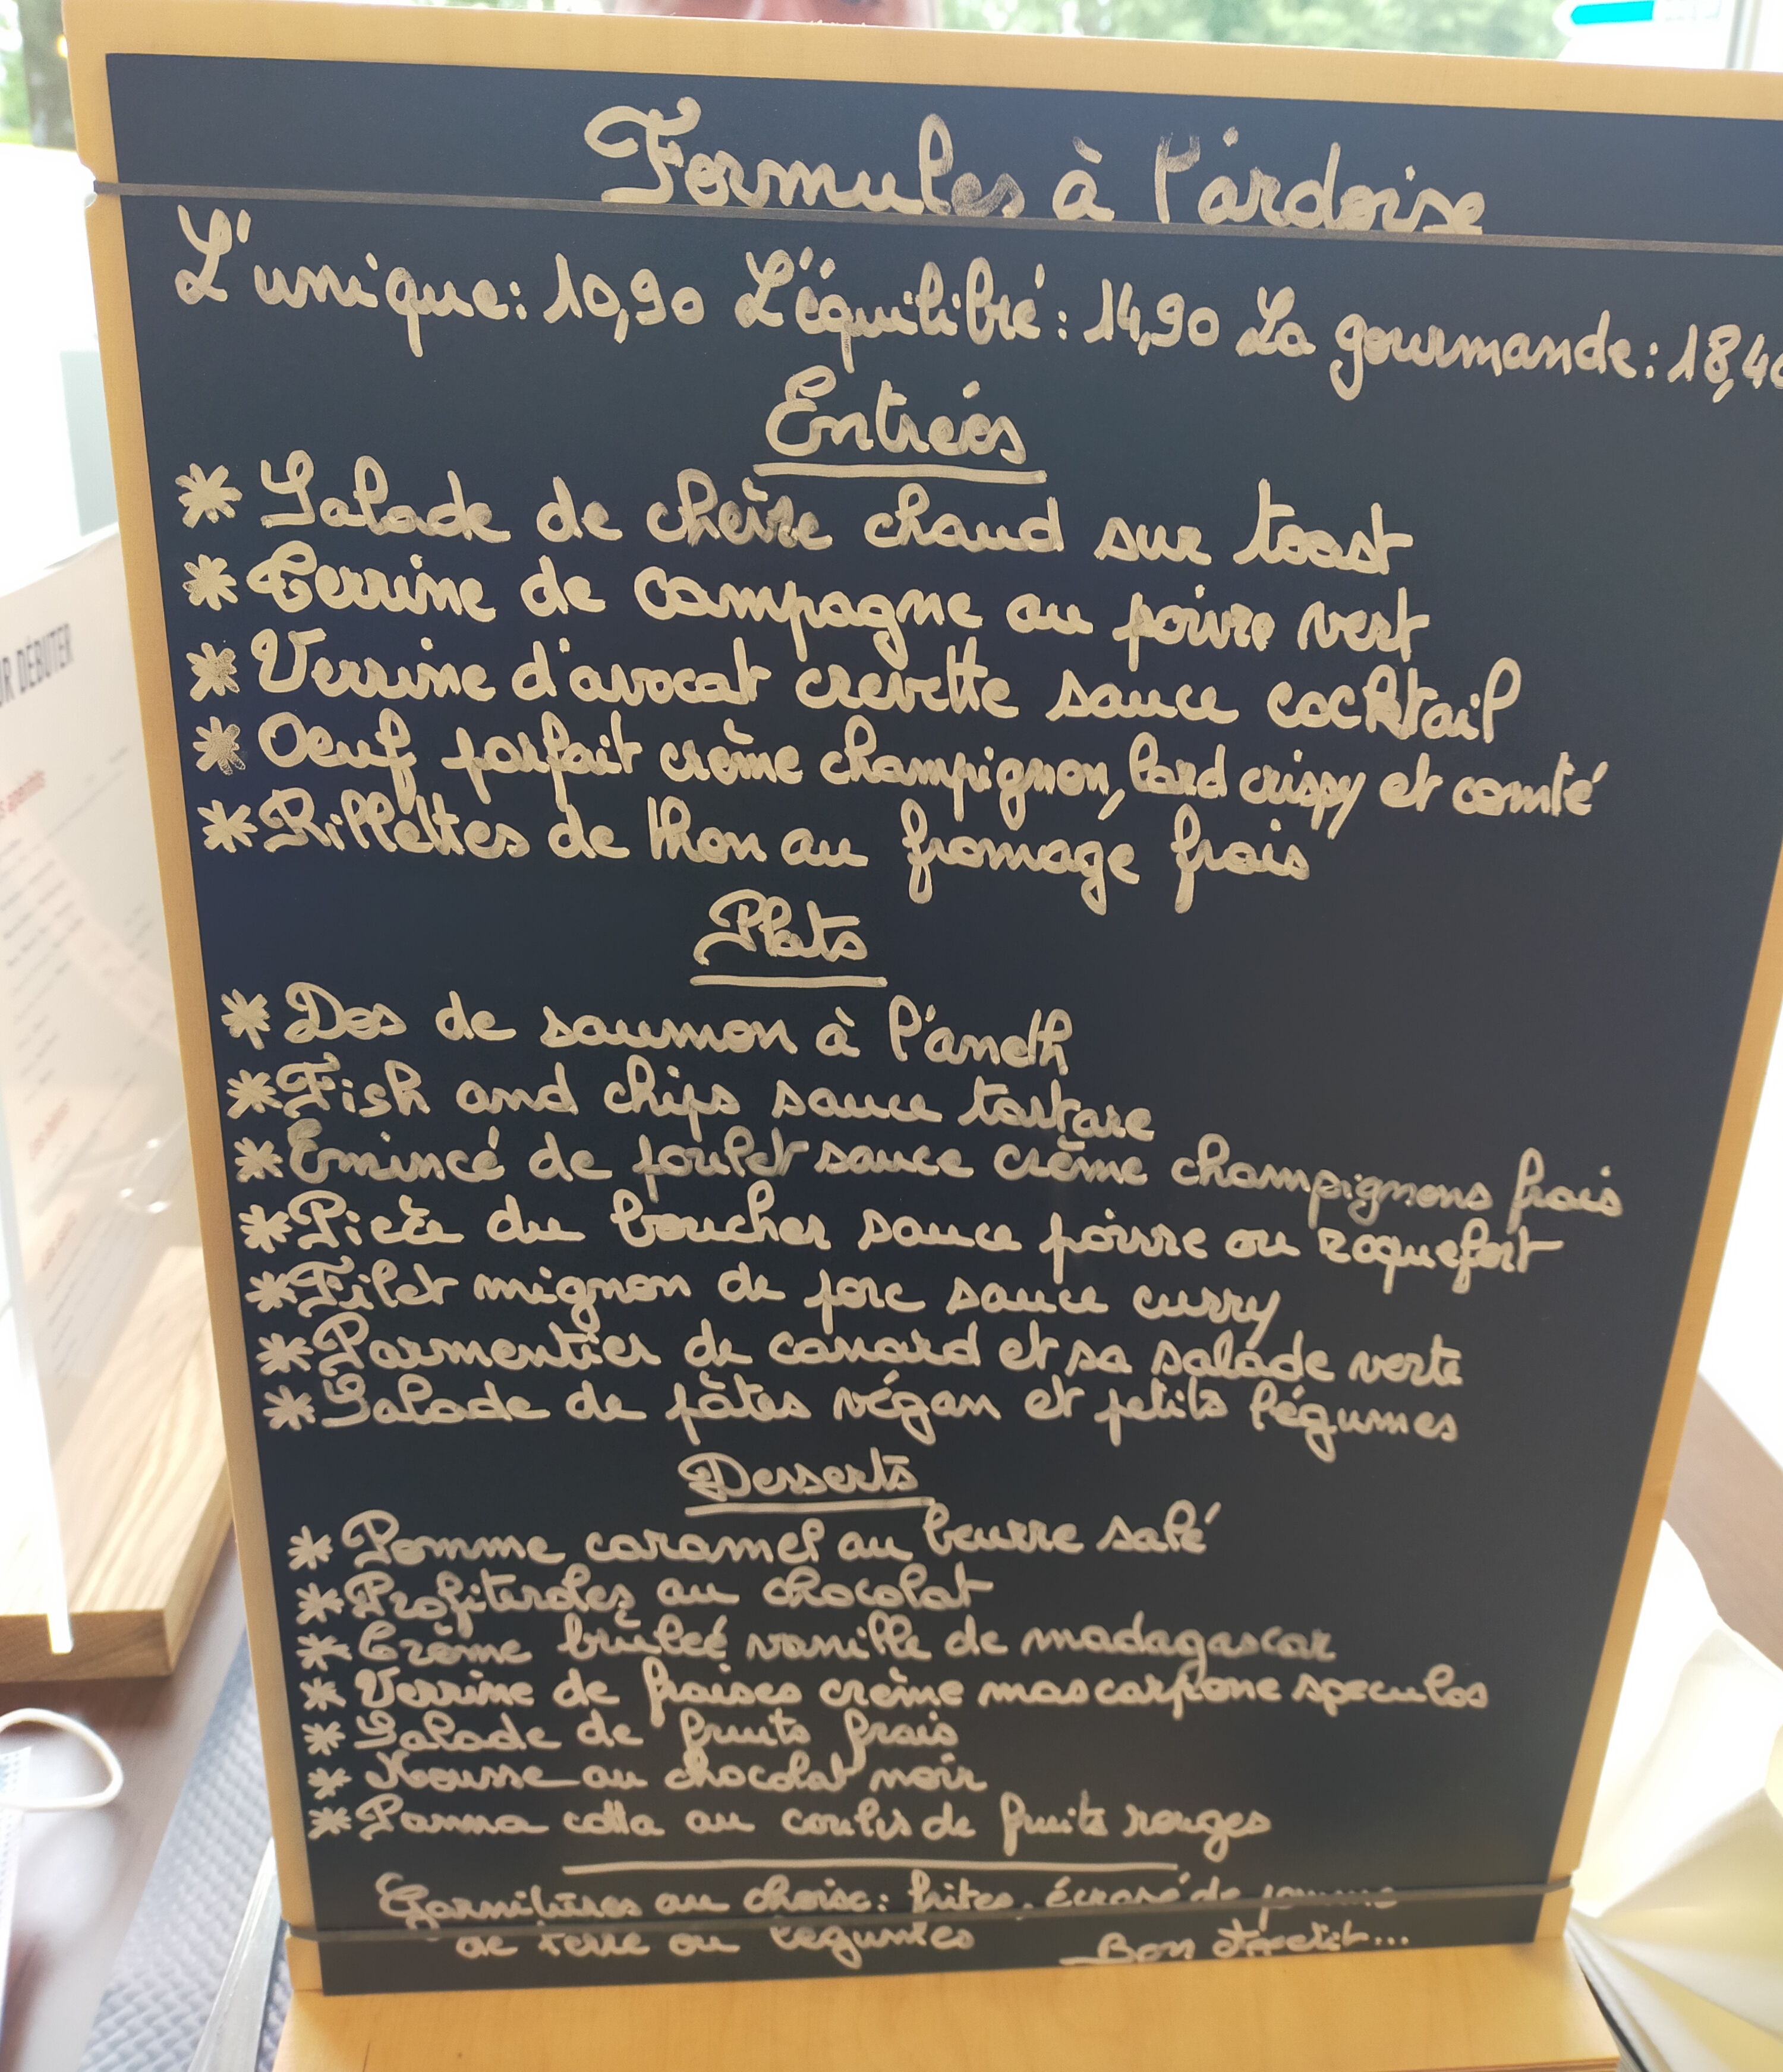 Formules à l'ardoise
L'unique: 10,90 L'équilibré: 14,90 La gourmande: 18,40
Entrées
* Salade de chèvre chaud sur toast
* Terrine de campagne au poivre vert
* Verrine d'avocat crevette sauce cocktail
* Oeuf parfait crème champignon, lard crispy et comté
* Rillettes de thon au fromage frais
Plats
* Dos de saumon à l'aneth
* Fish and chips sauce tartare
* Emincé de poulet sauce crème champignons frais
* Pièce du boucher sauce poivre ou roquefort
* Filet mignon de porc sauce curry
* Parmentier de canard et sa salade verte
* Salade de pâtes végan et petits légumes
Desserts
* Pomme caramel au beurre salé
* Profiteroles au chocolat
* Crème brûleé vanille de madagascar
* Verrine de fraises crème mascarpone speculos
* Salade de fruits frais
* Mousse au chocolat noir
* Panna cotta au coulis de fruits rouges
Garnitures au choix: frites, écrasé de pomme
de terre ou légumes Bon appétit...
UR DÉBUTER
s apéritifs